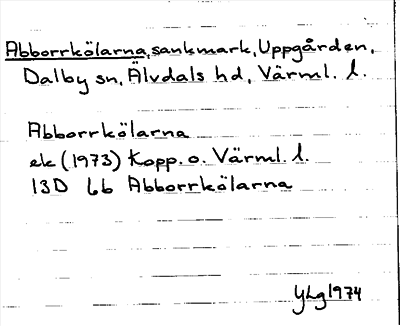 Abborrkölarna, sankmark, Uppgården,
Dalby sn, Älvdals hd, Värml. l.
Abborrkölarna
ek (1973) Kopp. o. Värml. l.
13D 6b Abborrkölarna
YLg 1974